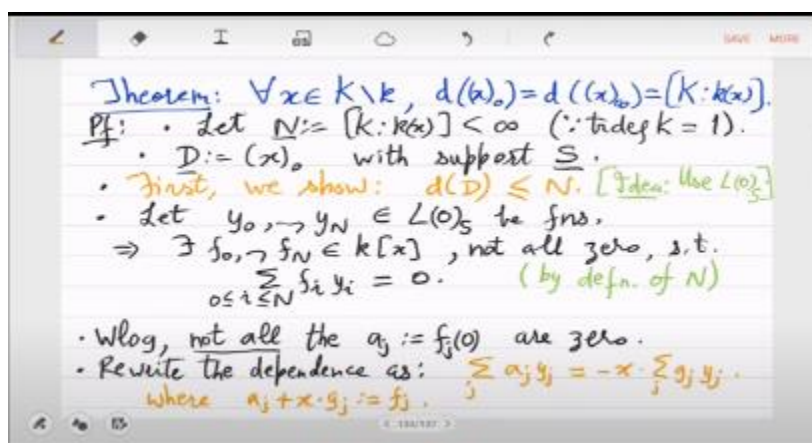 SAVE MORE
Theorem: ∀x∈K\k, d((x)₀)=d((x)∞)=[K:k(x)].
Pf: · Let N:=[K:k(x)]<∞ (∵trdeg K=1).
· D:=(x)₀ with support S.
· First, we show: d(D) ≤ N. [Idea: Use L(0)_S]
· Let y₀,⇁y_N ∈ L(0)_S be fns.
⇒ ∃ f₀,⇁f_N ∈ k[x], not all zero, s.t.
∑_{0≤i≤N} fᵢ yᵢ = 0. (by defn. of N)
· Wlog, not all the aⱼ := fⱼ(0) are zero.
· Rewrite the dependence as: ∑ⱼ aⱼyⱼ = -x·∑ⱼ gⱼyⱼ.
where aⱼ+x·gⱼ := fⱼ.